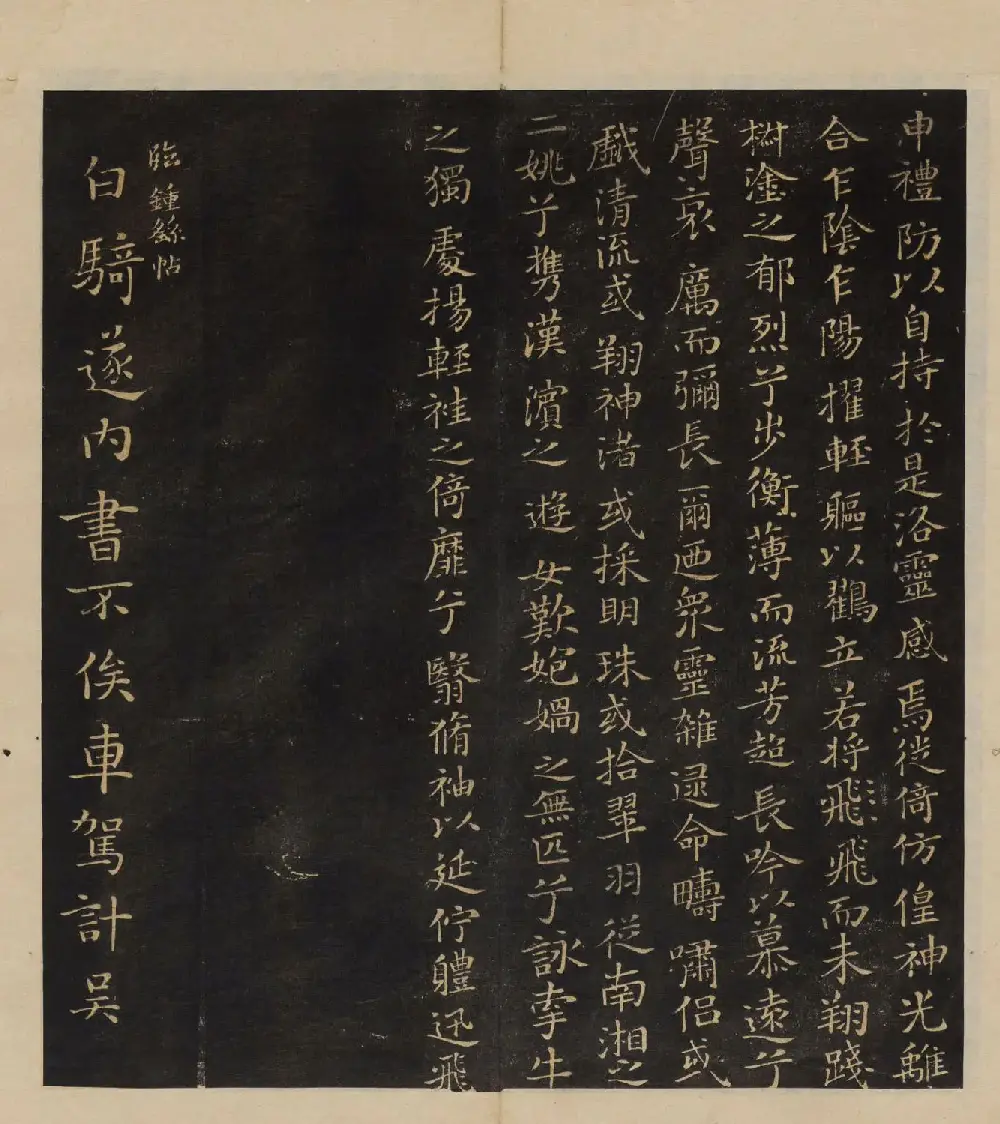 申禮防以自持於是洛靈感焉徙倚仿偟神光離
合乍陰乍陽擢輕軀以鶴立若將飛飛而未翔踐
樹塗之郁烈兮步衡薄而流芳超長吟以慕遠兮
聲哀厲而彌長爾迺衆靈雜遝命疇嘯侶或
戲清流或翔神渚或採明珠或拾翠羽從南湘之
二姚兮携漢濱之遊女歎匏媧之無匹兮詠牽牛
之獨處揚輕袿之倚靡兮翳脩袖以延佇軆迅飛
臨鍾繇帖
白騎遂內書不俟車駕計吳